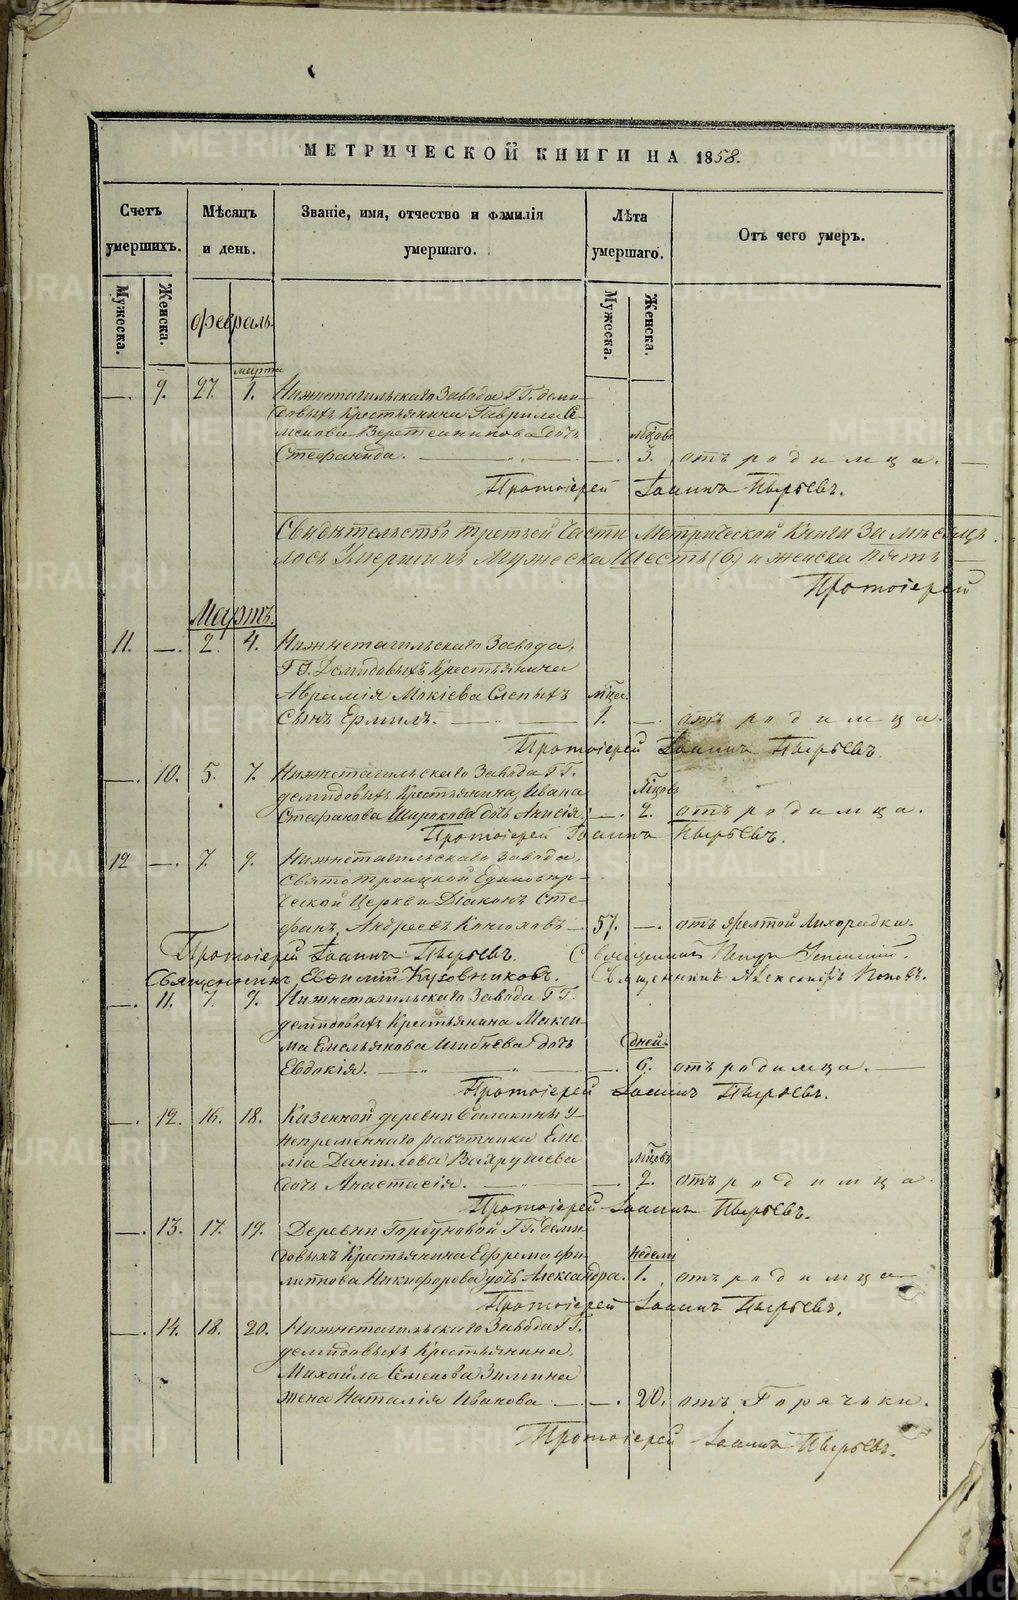 МЕТРИЧЕСКОЙ КНИГИ НА 1858.
Счетъ умершихъ.
Мѣсяцъ и день.
Званіе, имя, отчество и фамилія умершаго.
Лѣта умершаго.
Отъ чего умеръ.
Мужеска.
Женска.
Мужеска.
Женска.
Февраль.
марта
—. 9. 27. 1. Нижнетагильскаго Завода Гг. Деми-
довыхъ Крестьянина Гаврила Се-
менова Веретенникова дочь мѣсцовъ
Стефанида. — „ — —. 3. отъ родимца. —
Протоіерей Іоаннъ Пырьевъ.
Свидѣтельство третьей Части Метрической Книги За мѣсяцъ
лось Умершихъ Мужеска Шесть (6) и женска пять —
Протоіерей
Мартъ.
11. —. 2. 4. Нижнетагильскаго Завода,
Гг. Демидовыхъ Крестьянина
Аврамія Мокіева Слепыхъ мѣсца.
Сынъ Ермилъ. — „ — 1. —. отъ родимца.
Протоіерей Іоаннъ Пырьевъ
—. 10. 5. 7. Нижнетагильскаго Завода Гг.
Демидовыхъ Крестьянина Ивана мѣсцовъ
Стефанова Широкова дочь Анисія; —. 2. отъ родимца.
Протоіерей Іоаннъ Пырьевъ.
12 —. 7. 9. Нижнетагильскаго Завода,
Святотроицкой Единовѣр-
ческой Церкви Діаконъ Сте-
фанъ Андреевъ Конюховъ — 57. —. отъ Желтой Лихорадки.
Протоіерей Іоаннъ Пырьевъ. Священникъ Петръ
Священникъ Евѳимій Кузовниковъ. Священникъ Александръ Поповъ.
—. 11. 7. 9. Нижнетагильскаго Завода Гг.
Демидовыхъ Крестьянина Макси-
ма Емельянова дочь дней
Евдокія. — „ — —. 6. отъ родимца. —
Протоіерей Іоаннъ Пырьевъ.
—. 12. 16. 18. Казенной деревни
непременнаго работника
Данилова Вахрушева мѣсцовъ
дочь Анастасія. — „ — —. 2. отъ родимца.
Протоіерей Іоаннъ Пырьевъ.
—. 13. 17. 19. Деревни Горбуновой Гг. Деми-
довыхъ Крестьянина Ефрема Фи- недели
липпова Никифорова дочь Александра. 1. отъ родимца
Протоіерей Іоаннъ Пырьевъ.
—. 14. 18. 20. Нижнетагильскаго Завода Гг.
Демидовыхъ Крестьянина,
Михайла Семенова Зимина
жена Наталія Иванова —. —. 20. отъ Горячьки.
Протоіерей Іоаннъ Пырьевъ.
METRIKI.GASO-URAL.RU